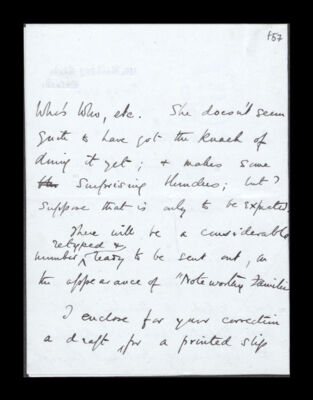 157
Who's Who, etc. She doesn't seem
quite to have got the knack of
doing it yet; & makes some
surprising blunders; but I
suppose that is only to be expected.
There will be a considerable
retyped &
number ^ ready to be sent out, on
the appearance of "Noteworthy Families
I enclose for your correction
a draft, for a printed slip